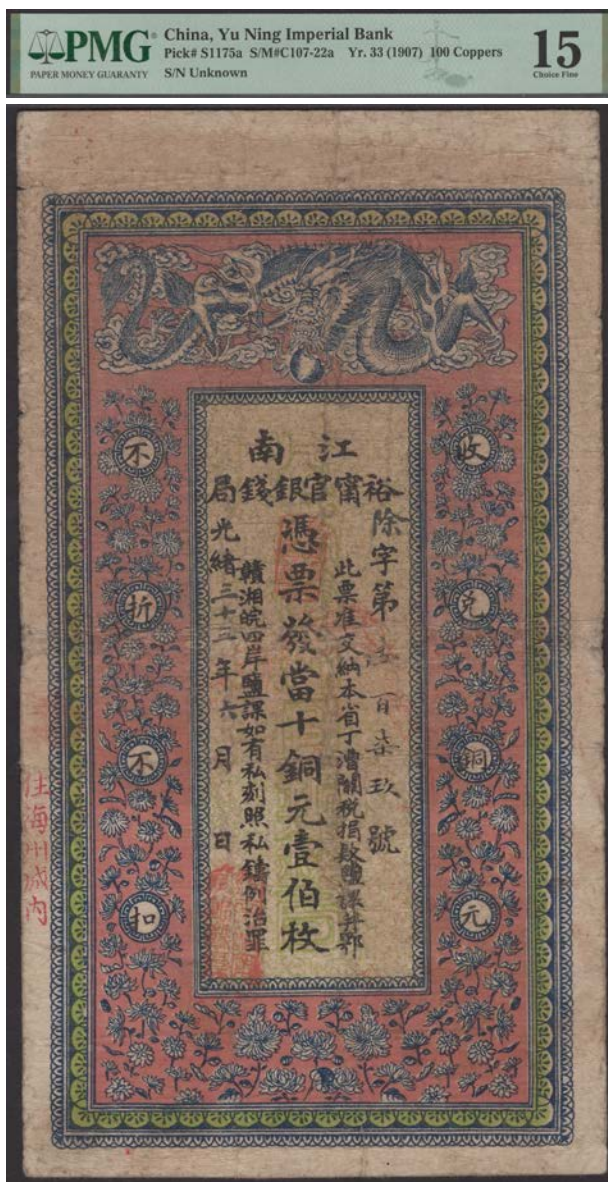 PMG
PAPER MONEY GUARANTY
China, Yu Ning Imperial Bank
Pick# S1175a S/M#C107-22a Yr. 33 (1907) 100 Coppers
S/N Unknown
15
Choice Fine
江南
裕甯官銀錢局
收兌銅元
除字第百柒玖號
此票准交納本省丁漕關稅捐款鹽課并鄂
憑票發當十銅元壹佰枚
贛湘皖四岸鹽課如有私刻照私鑄例治罪
光緒三十三年六月 日
不折不扣
海州城内